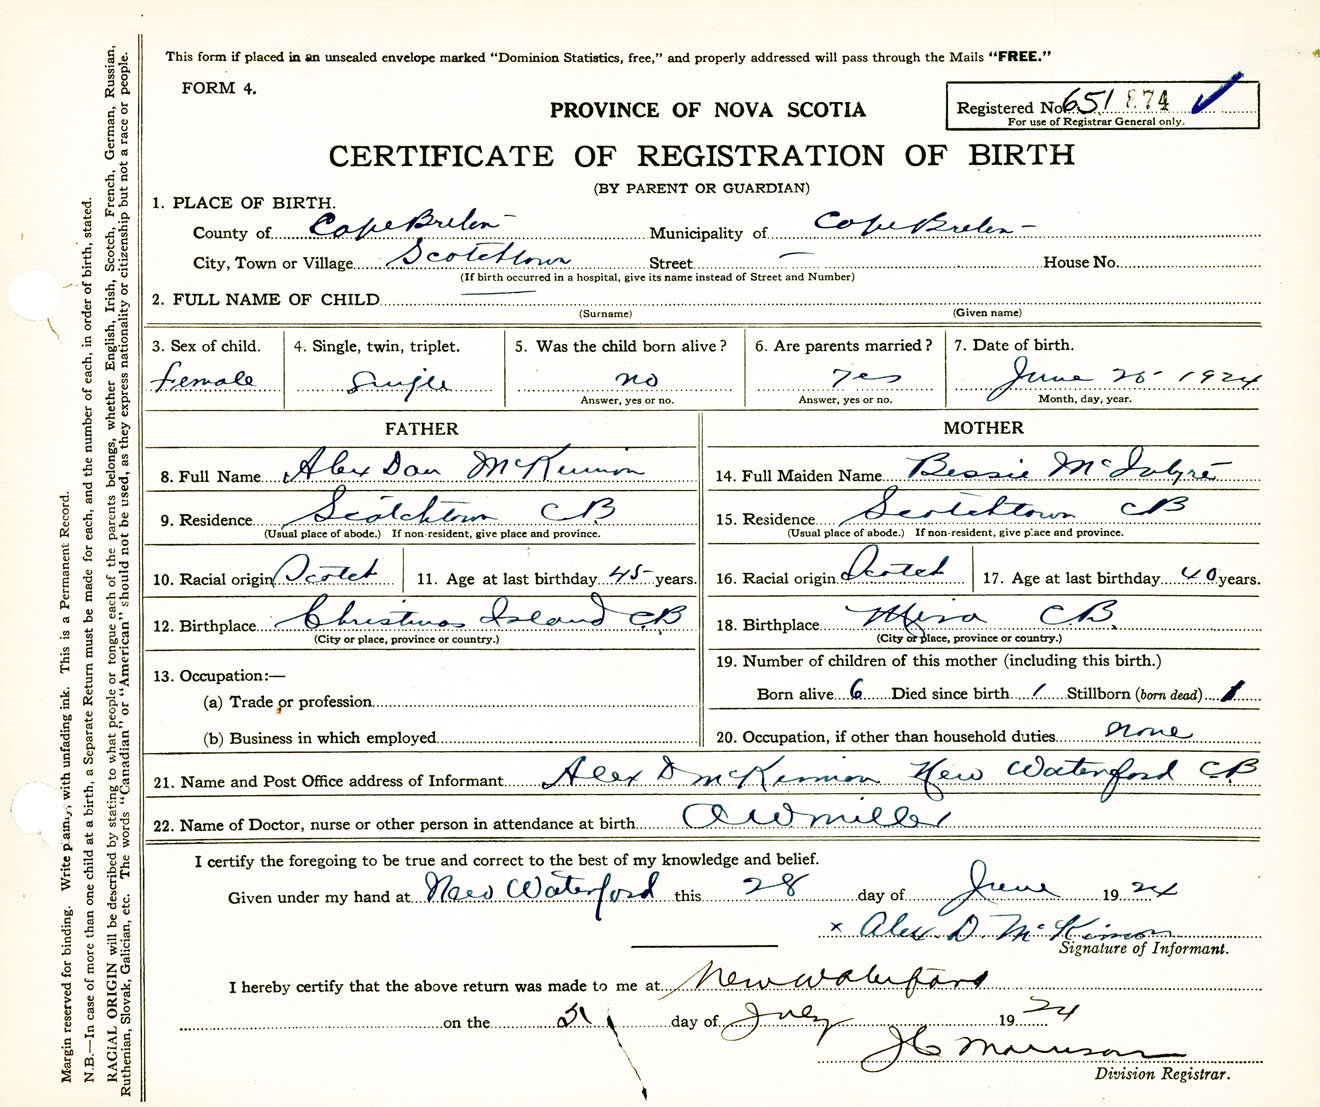 This form if placed in an unsealed envelope marked "Dominion Statistics, free," and properly addressed will pass through the Mails "FREE."
FORM 4.
Registered No. 651 874
For use of Registrar General only.
PROVINCE OF NOVA SCOTIA
CERTIFICATE OF REGISTRATION OF BIRTH
(BY PARENT OR GUARDIAN)
1. PLACE OF BIRTH.
County of Cape Breton Municipality of Cape Breton
City, Town or Village Scotchtown Street — House No.
(If birth occurred in a hospital, give its name instead of Street and Number)
2. FULL NAME OF CHILD
(Surname) (Given name)
3. Sex of child. 4. Single, twin, triplet. 5. Was the child born alive? 6. Are parents married? 7. Date of birth.
female Single no yes June 25 1924
Answer, yes or no. Answer, yes or no. Month, day, year.
FATHER MOTHER
8. Full Name Alex Dan McKinnon 14. Full Maiden Name Bessie McIntyre
9. Residence Scotchtown CB 15. Residence Scotchtown CB
(Usual place of abode.) If non-resident, give place and province. (Usual place of abode.) If non-resident, give place and province.
10. Racial origin Scotch 11. Age at last birthday 45 years. 16. Racial origin Scotch 17. Age at last birthday 40 years.
12. Birthplace Christmas Island C.B 18. Birthplace Mira C.B.
(City or place, province or country.) (City or place, province or country.)
13. Occupation:— 19. Number of children of this mother (including this birth.)
(a) Trade or profession Born alive 6 Died since birth 1 Stillborn (born dead) 1
(b) Business in which employed 20. Occupation, if other than household duties none
21. Name and Post Office address of Informant Alex D McKinnon New Waterford C.B
22. Name of Doctor, nurse or other person in attendance at birth A W Miller
I certify the foregoing to be true and correct to the best of my knowledge and belief.
Given under my hand at New Waterford this 28 day of June 1924
x Alex. D. McKinnon
Signature of Informant.
I hereby certify that the above return was made to me at New Waterford
on the day of July 1924
J C Morrison
Division Registrar.
Margin reserved for binding. Write plainly, with unfading ink. This is a Permanent Record.
N.B.—In case of more than one child at a birth, a Separate Return must be made for each, and the number of each, in order of birth, stated.
RACIAL ORIGIN will be described by stating to what people or tongue each of the parents belongs, whether English, Irish, Scotch, French, German, Russian,
Ruthenian, Slovak, Galician, etc. The words "Canadian" or "American" should not be used, as they express nationality or citizenship but not a race or people.